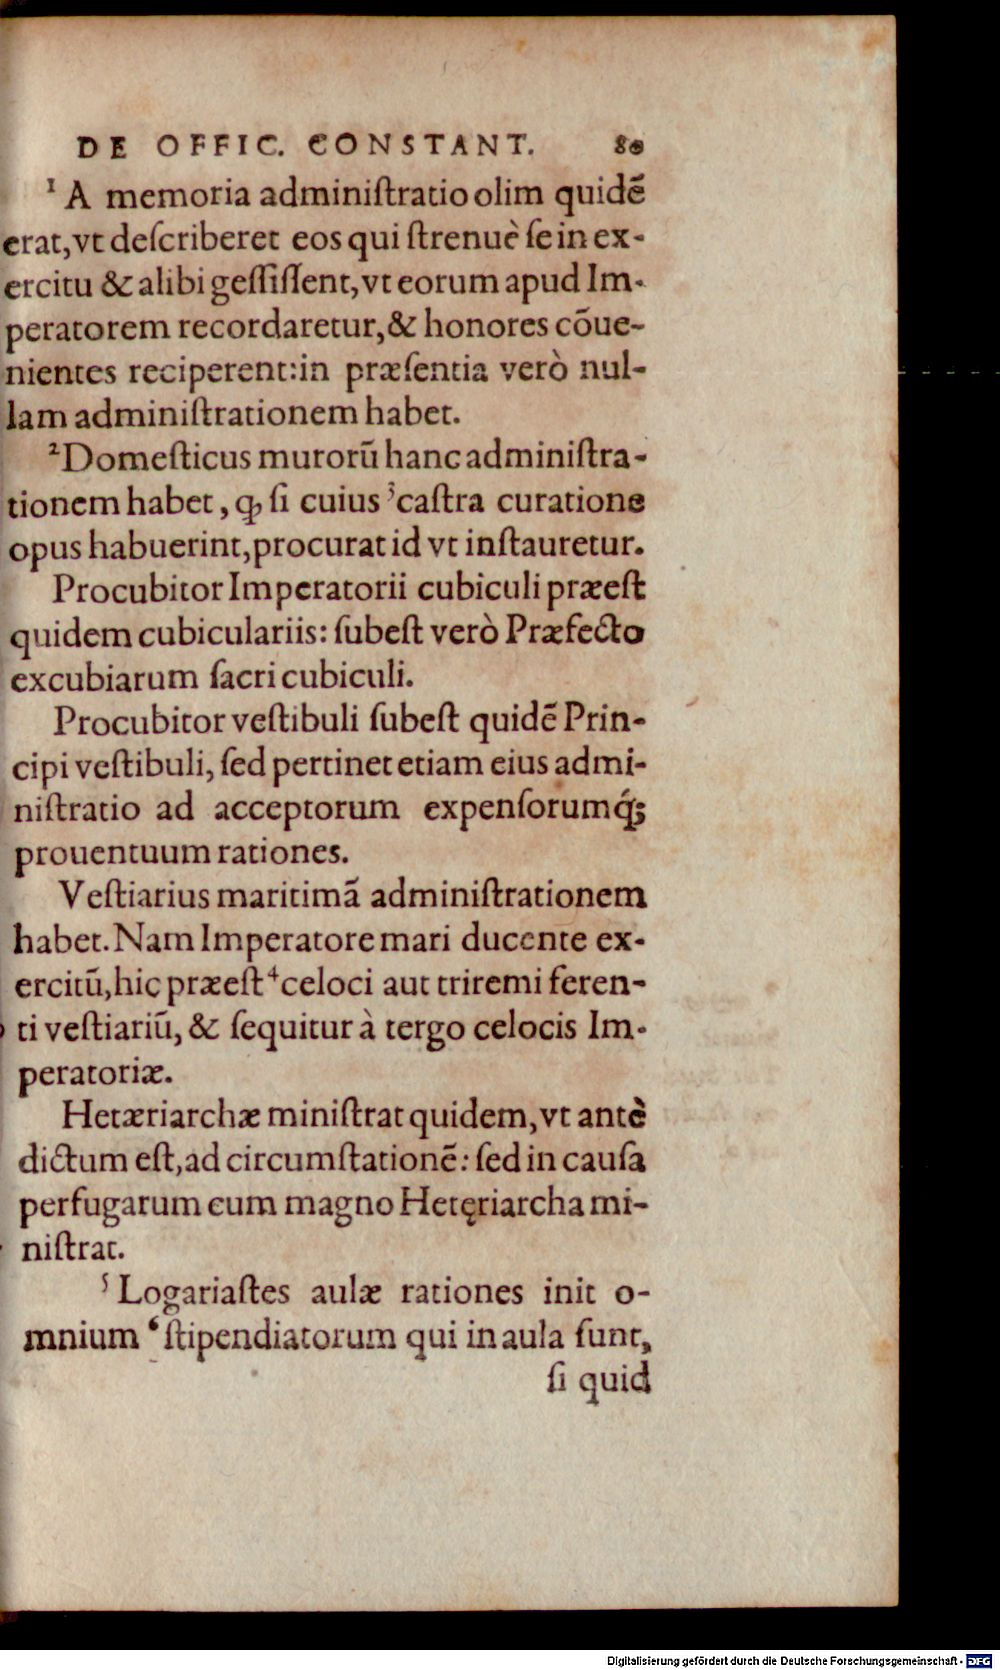 DE OFFIC. CONSTANT. 80
¹ A memoria adminiſtratio olim quidẽ
erat, vt deſcriberet eos qui ſtrenuè ſe in ex-
ercitu & alibi geſſiſſent, vt eorum apud Im-
peratorem recordaretur, & honores cõue-
nientes reciperent: in præſentia verò nul-
lam adminiſtrationem habet.
²Domeſticus murorũ hanc adminiſtra-
tionem habet, ꝙ ſi cuius ³caſtra curatione
opus habuerint, procurat id vt inſtauretur.
Procubitor Imperatorii cubiculi præeſt
quidem cubiculariis: ſubeſt verò Præfecto
excubiarum ſacri cubiculi.
Procubitor veſtibuli ſubeſt quidẽ Prin-
cipi veſtibuli, ſed pertinet etiam eius admi-
niſtratio ad acceptorum expenſorumq́;
prouentuum rationes.
Veſtiarius maritimã adminiſtrationem
habet. Nam Imperatore mari ducente ex-
ercitũ, hic præeſt ⁴celoci aut triremi feren-
ti veſtiariũ, & ſequitur à tergo celocis Im-
peratoriæ.
Hetæriarchæ miniſtrat quidem, vt antè
dictum eſt, ad circumſtationẽ: ſed in cauſa
perfugarum cum magno Hetęriarcha mi-
niſtrat.
⁵ Logariaſtes aulæ rationes init o-
mnium ⁶ſtipendiatorum qui in aula ſunt,
ſi quid
Digitalisierung gefördert durch die Deutsche Forschungsgemeinschaft - DFG